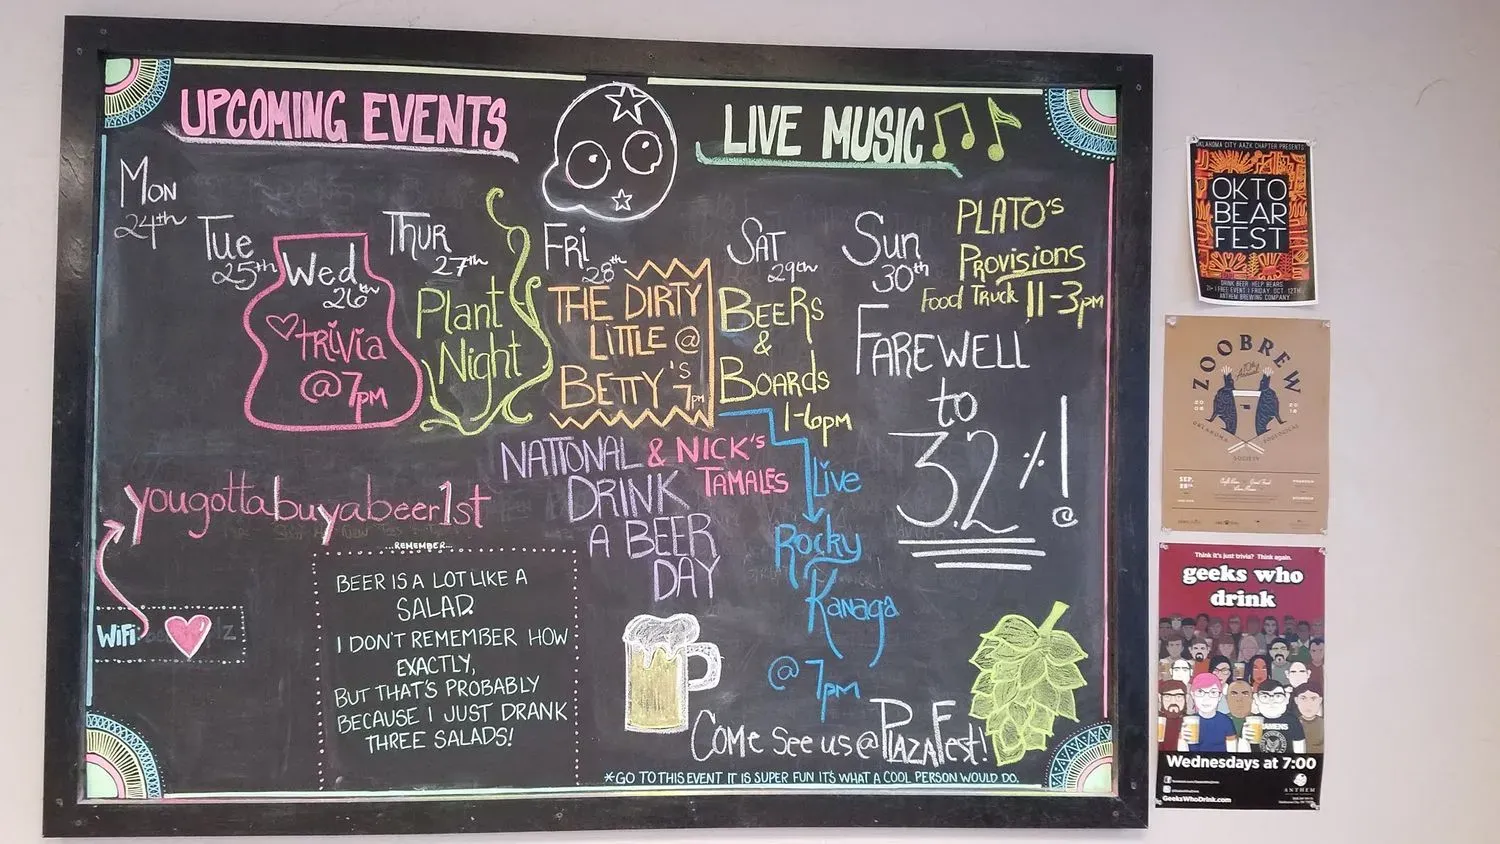 UPCOMING EVENTS
LIVE MUSIC
MON
24th
Tue
25th
Wed
26th
trivia
@7pm
Thur
27th
Plant
Night
Fri
28th
THE DIRTY
LITTLE @
BETTY'S
7pm
NATIONAL
DRINK
A BEER
DAY
& NICK'S
TAMALES
SAT
29th
BEERS
&
BOARDS
1-6pm
Live
Rocky
Kanaga
@ 7pm
Sun
30th
PLATO'S
PROVISIONS
Food Truck 11-3pm
FAREWELL
to
3.2%!
yougottabuyabeer1st
WiFi
...REMEMBER...
BEER IS A LOT LIKE A
SALAD.
I DON'T REMEMBER HOW
EXACTLY,
BUT THAT'S PROBABLY
BECAUSE I JUST DRANK
THREE SALADS!
COME See us @ PLAZAFest!
*GO TO THIS EVENT IT IS SUPER FUN ITS WHAT A COOL PERSON WOULD DO.
OKLAHOMA CITY AAZK CHAPTER PRESENTS
OKTO
BEAR
FEST
DRINK BEER HELP BEARS
21+ | FREE EVENT | FRIDAY, OCT. 12TH,
ANTHEM BREWING COMPANY
ZOOBREW
OKLAHOMA ZOOLOGICAL
SOCIETY
SEP.
28TH
Think it's just trivia? Think again.
geeks who
drink
Wednesdays at 7:00
GeeksWhoDrink.com
ANTHEM